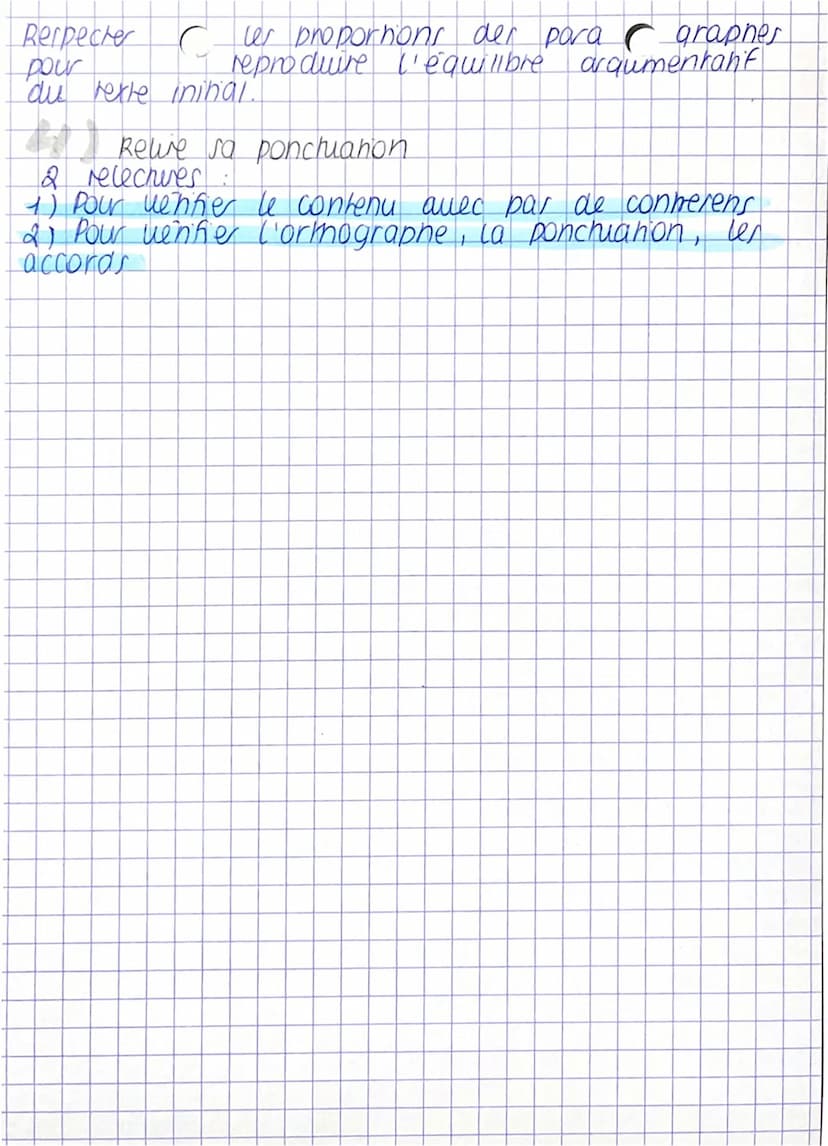 Respecter les proportions des para graphes
pour reproduire l'équilibre argumentatif
du texte initial.
4) Relire sa ponctuation
2 relectures :
1) Pour vérifier le contenu avec pas de contresens
2) Pour vérifier l'orthographe, la ponctuation, les
accords